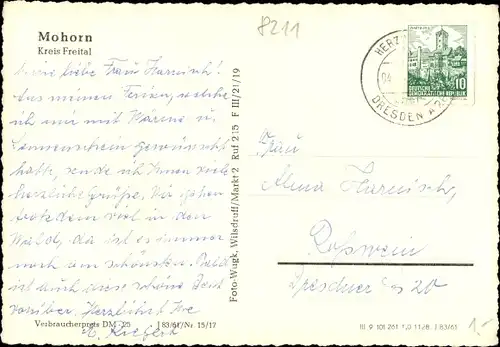 8211
Mohorn
Kreis Freital
Meine liebe Frau Harnisch!
Aus meinen Ferien, welche
ich mir mit Wärme u.
Sonnenschein gewünscht
hatte, sende ich Ihnen viele
herzliche Grüße. Wir gehen
trotzdem viel in den
Wald, da ist es immer
noch am schönsten. Bald
ist auch diese schöne Zeit
vorüber. Herzlichst Ihre
Verbraucherpreis DM -,25 J 83/61/Nr. 15/17
Foto-Wugk, Wilsdruff/Markt 2 Ruf 215 F III/21/19
HERZ
DRESDEN A
WARTBURG
DEUTSCHE
DEMOKRATISCHE REPUBLIK
10
Frau
Alma Harnisch,
Roßwein
Dresdner 20
III 9 101 261 1,0 11/8. J 83/61
1.-